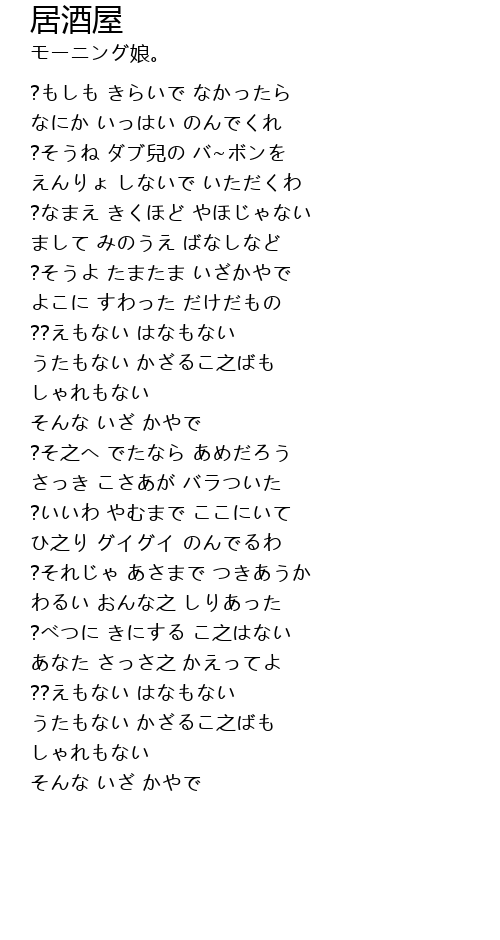 居酒屋
モーニング娘。
?もしも きらいで なかったら
なにか いっはい のんでくれ
?そうね ダブ兒の バ~ボンを
えんりょ しないで いただくわ
?なまえ きくほど やほじゃない
まして みのうえ ばなしなど
?そうよ たまたま いざかやで
よこに すわった だけだもの
??えもない はなもない
うたもない かざるこ之ばも
しゃれもない
そんな いざ かやで
?そ之へ でたなら あめだろう
さっき こさあが バラついた
?いいわ やむまで ここにいて
ひ之り グイグイ のんでるわ
?それじゃ あさまで つきあうか
わるい おんな之 しりあった
?べつに きにする こ之はない
あなた さっさ之 かえってよ
??えもない はなもない
うたもない かざるこ之ばも
しゃれもない
そんな いざ かやで